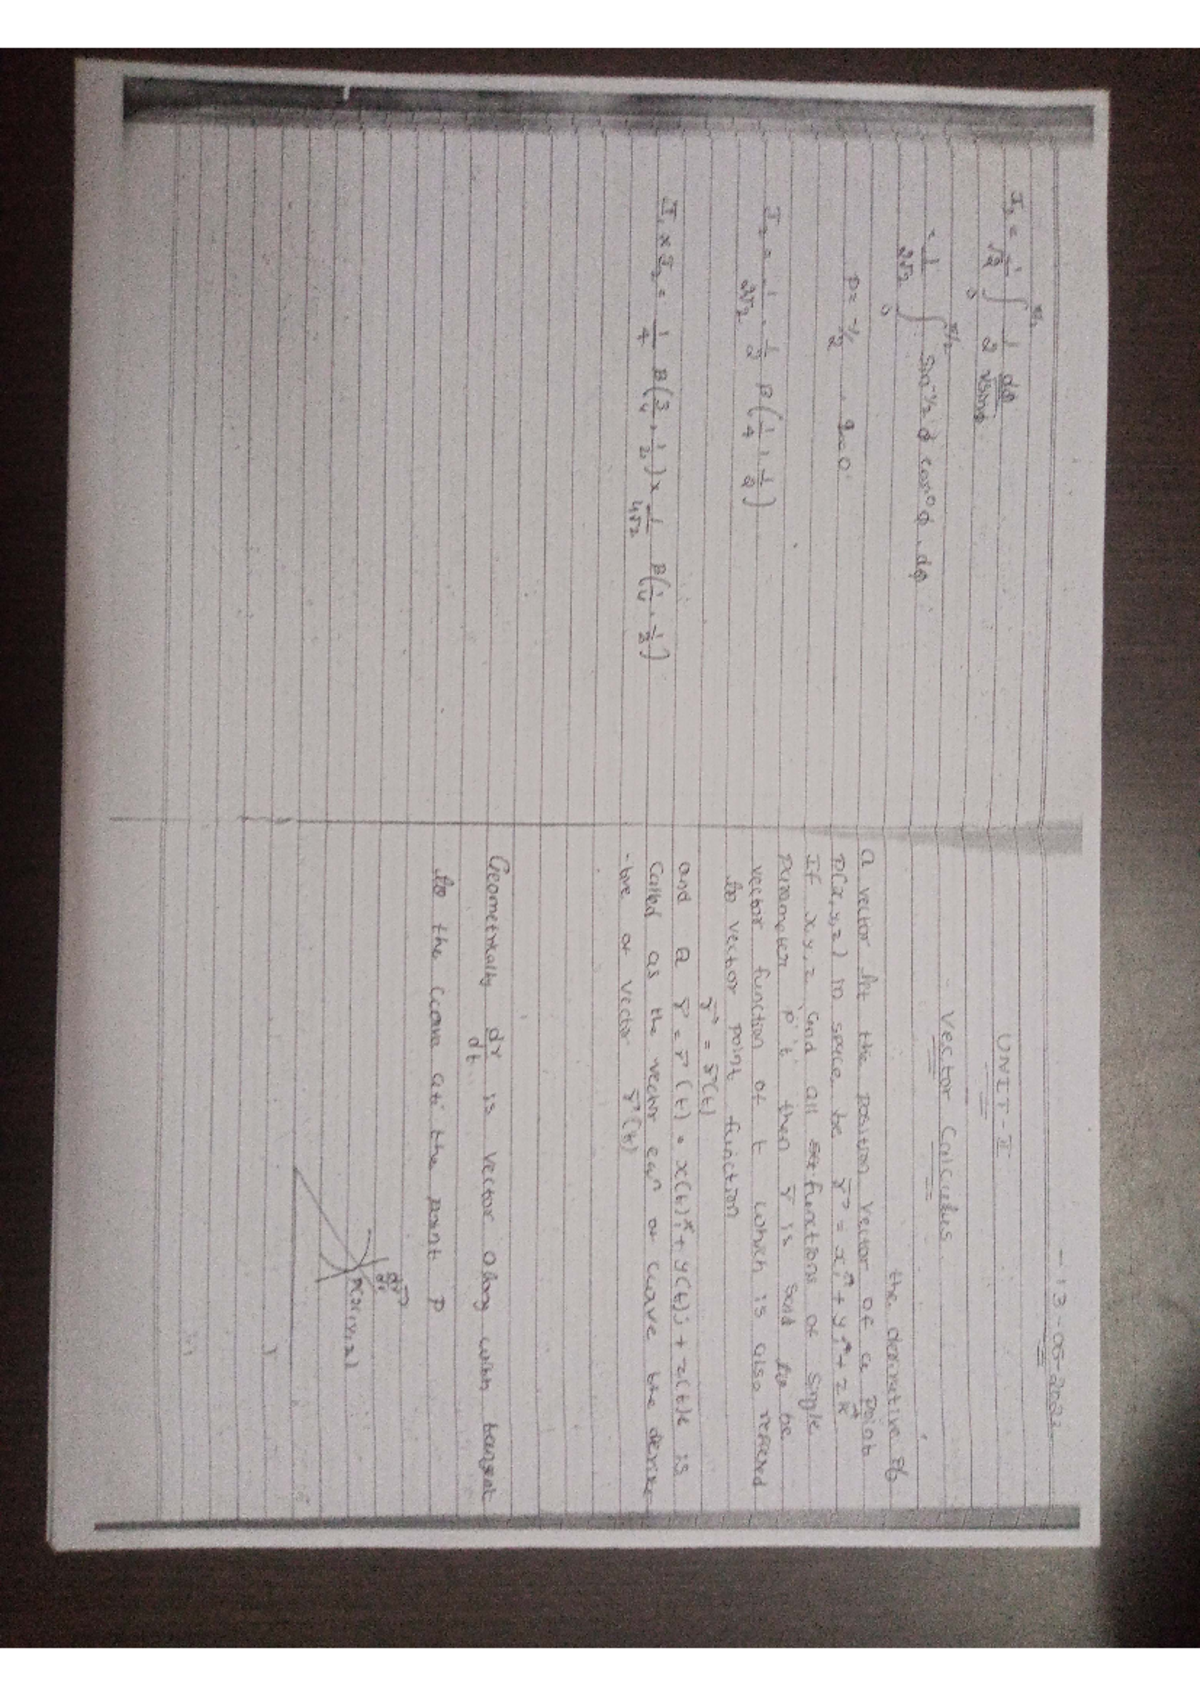 I₂ = 1/√2 ∫₀^π/2 1/2 dφ/√sinφ
= 1/2√2 ∫₀^π/2 sin^-1/2 φ cos⁰ φ . dφ
p = -1/2 , q = 0
I₂ = 1/2√2 . 1/2 β(1/4 , 1/2)
I₁ x I₂ = 1/4 β(3/4 , 1/2) x 1/4√2 β(1/4 , 1/2)
- 13-06-2022
UNIT - II
- Vector Calculus
the derivative of
a vector let the position vector of a point
P(x, y, z) in space be r⃗ = xî + yĵ + zk̂
If x, y, z and all functions of single
parameter 't' then r̅ is said to be
vector function of t which is also refered
to vector point function
r⃗ = r⃗(t)
and a r⃗ = r⃗(t) = x(t)î + y(t)j + z(t)k is
called as the vector eqn or curve the deriva-
-tive of vector r⃗(t)
Geometrically dr/dt is vector along with tangent
to the curve at the point P
dr⃗/dt
P(x, y, z)